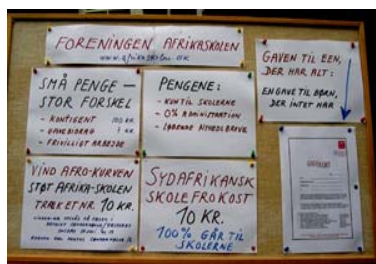 FORENINGEN AFRIKASKOLEN
www.afrikaskolen.dk
SMÅ PENGE –
STOR FORSKEL
- KONTIGENT 100 KR.
- GAVEBIDRAG ? KR.
- FRIVILLIGT ARBEJDE
PENGENE:
- KUN TIL SKOLERNE
- 0% ADMINISTRATION
- LØBENDE NYHEDSBREVE
GAVEN TIL EEN,
DER HAR ALT:
EN GAVE TIL BØRN,
DER INTET HAR
VIND AFRO-KURVEN
STØT AFRIKA-SKOLEN
TRÆK ET NR. 10 KR.
SYDAFRIKANSK
SKOLEFROKOST
10 KR.
100% GÅR TIL
SKOLERNE
GAVEKORT